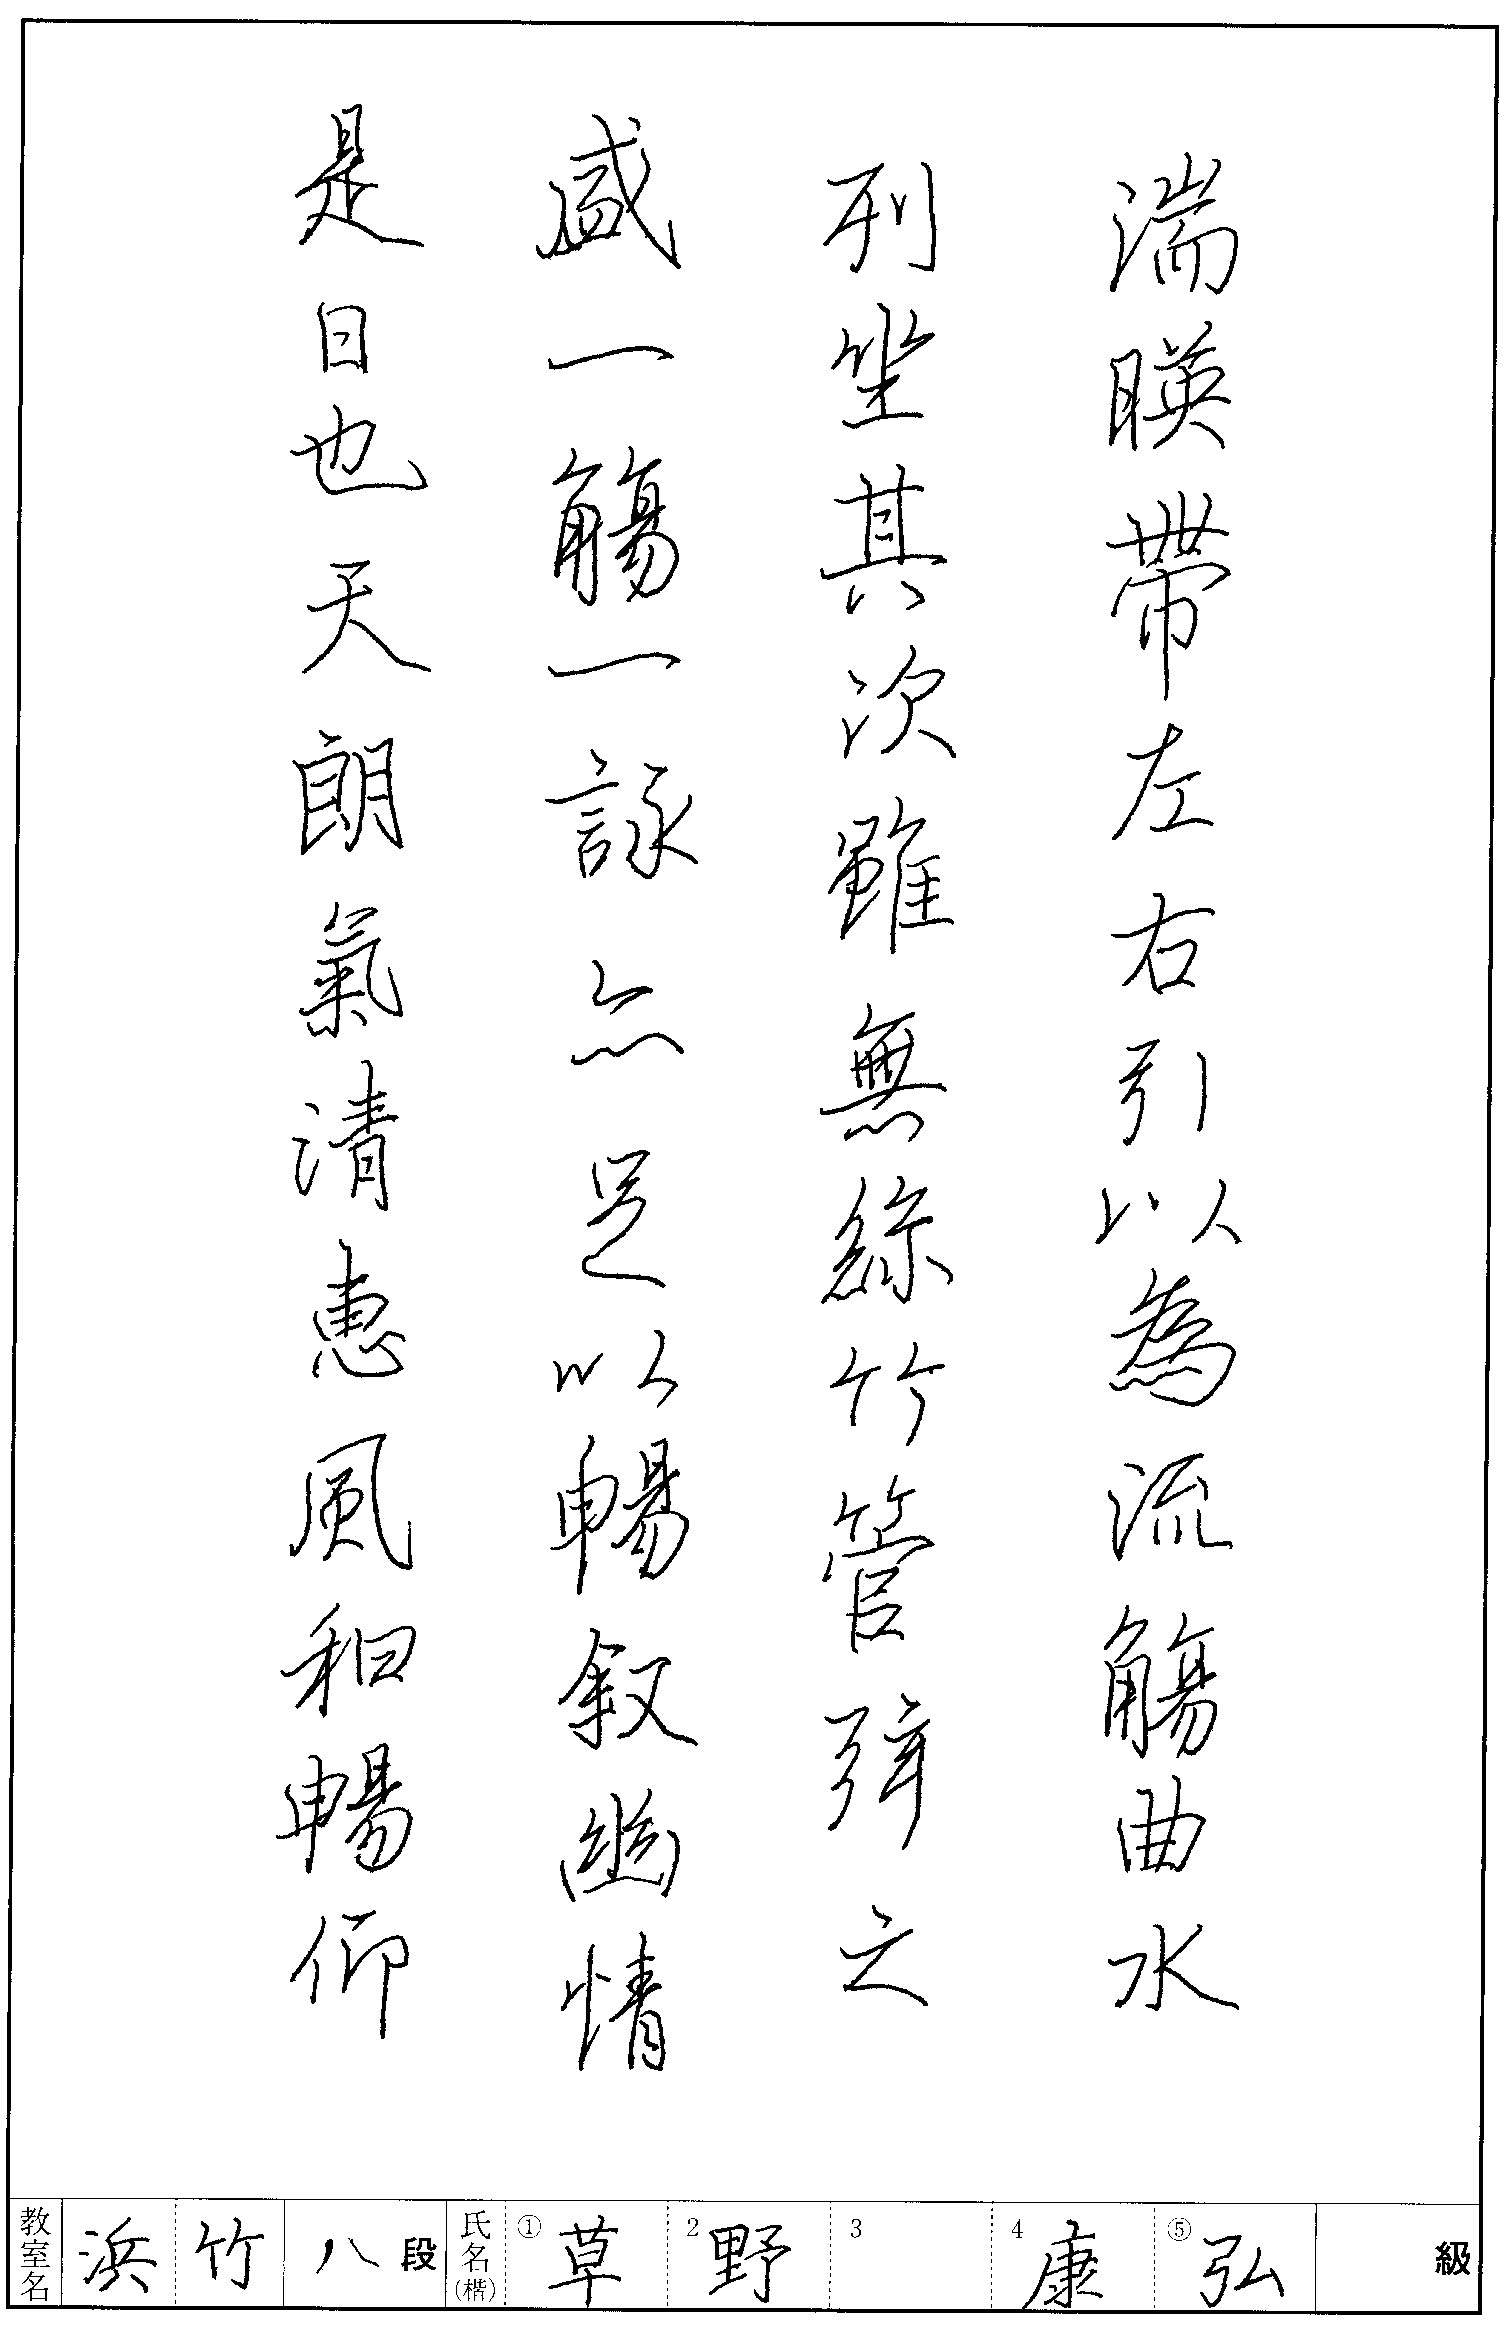 湍暎帶左右引以為流觴曲水
列坐其次雖無絲竹管弦之
盛一觴一詠亦足以暢叙幽情
是日也天朗氣清惠風和暢仰
教室名 浜竹 八段 氏名(楷) ①草 2野 3 4康 ⑤弘 級